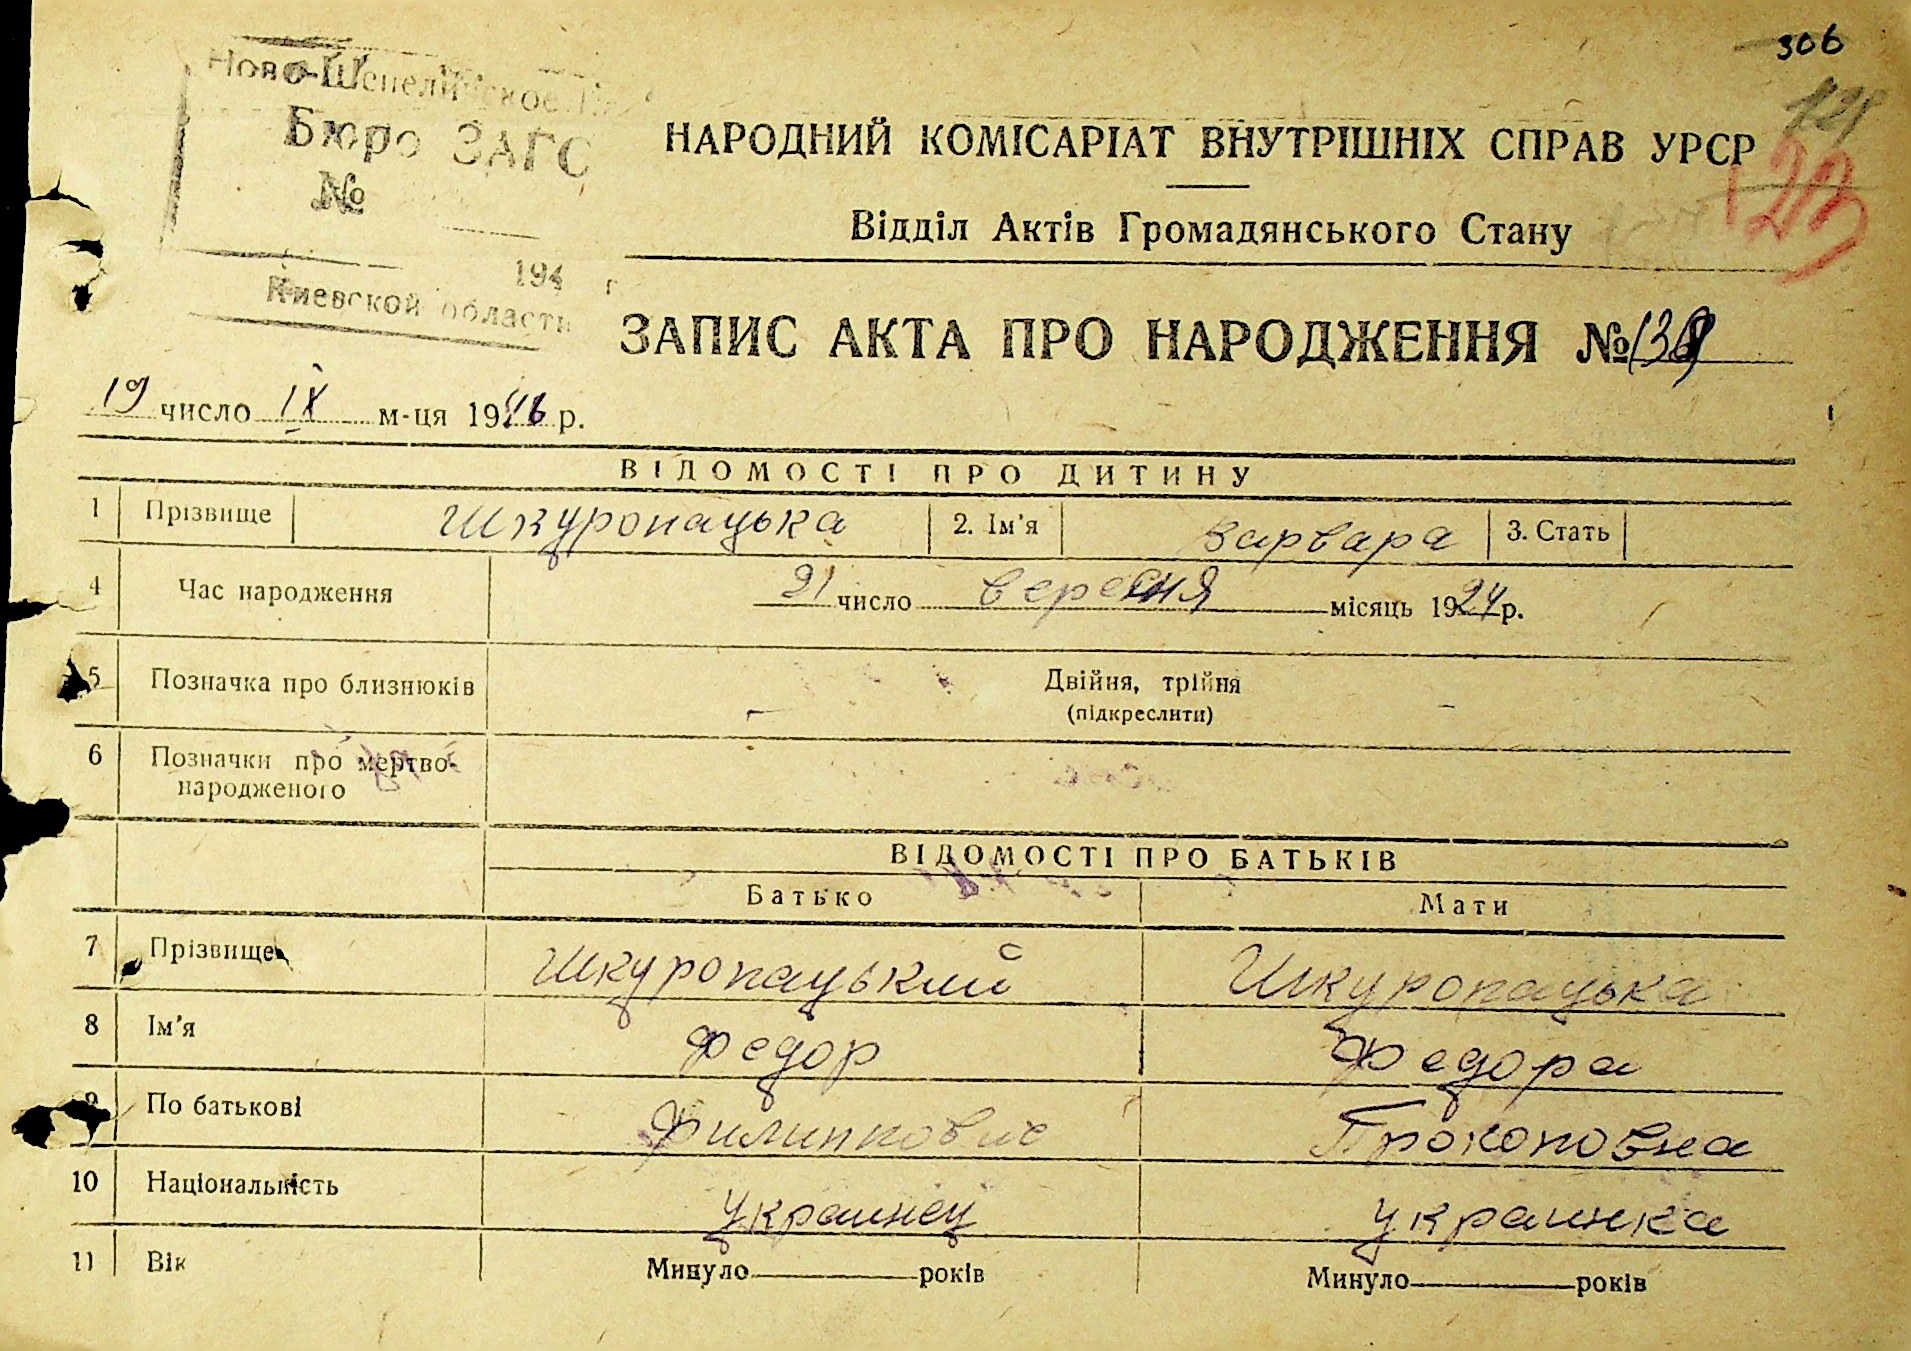 306
Ново-Шепелическое
Бюро ЗАГС
№
194 г
Киевской области
НАРОДНИЙ КОМІСАРІАТ ВНУТРІШНІХ СПРАВ УРСР
Відділ Актів Громадянського Стану
ЗАПИС АКТА ПРО НАРОДЖЕННЯ №
19 число IX м-ця 1946 р.
ВІДОМОСТІ ПРО ДИТИНУ
1 Прізвище Шкуропацька 2. Ім'я Варвара 3. Стать
4 Час народження 21 число вересня місяць 1924 р.
5 Позначка про близнюків Двійня, трійня
(підкреслити)
6 Позначки про мертво-
народженого
ВІДОМОСТІ ПРО БАТЬКІВ
Батько Мати
7 Прізвище Шкуропацький Шкуропацька
8 Ім'я Федор Федора
9 По батькові Филиппович Прокоповна
10 Національність украинец украинка
11 Вік Минуло років Минуло років